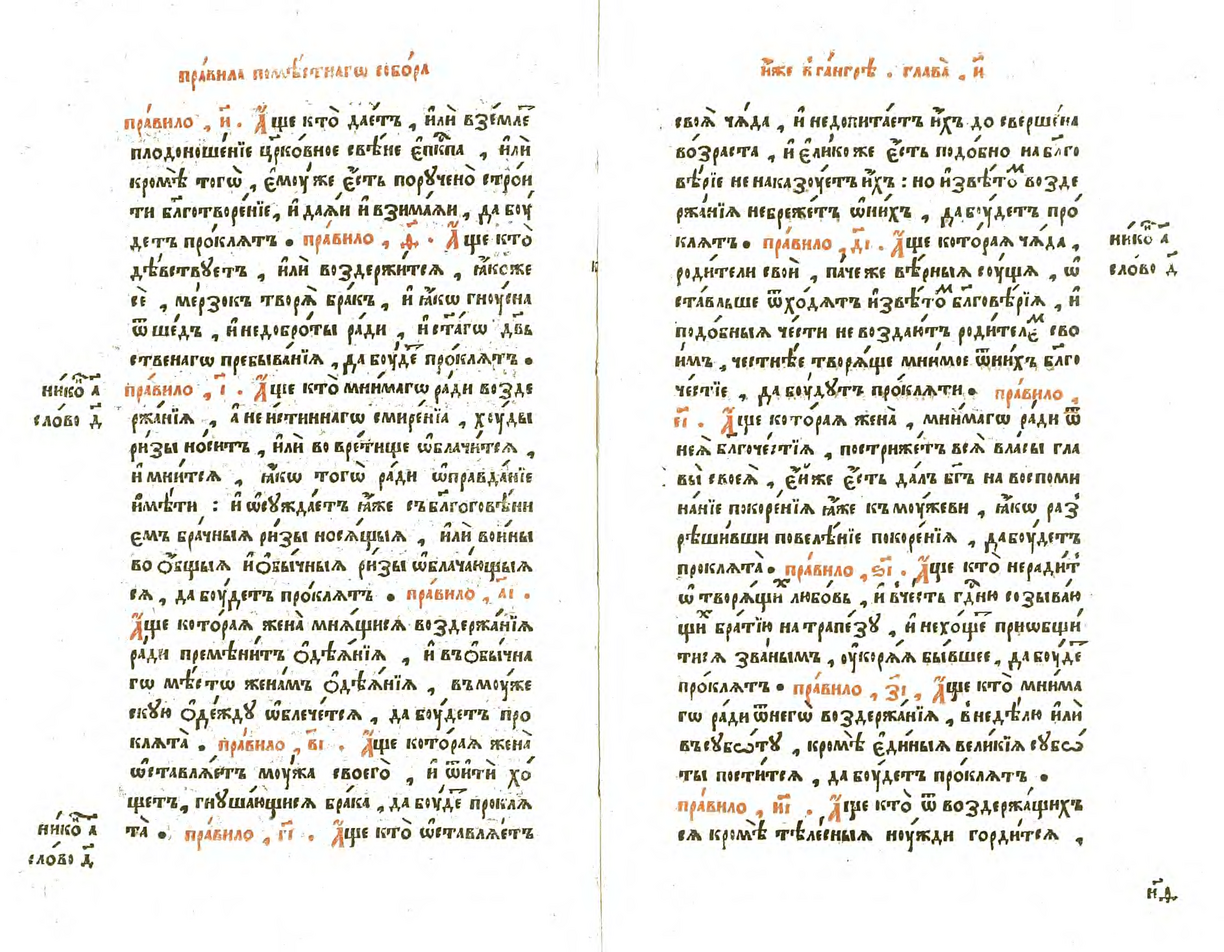 пра́вила поме́стнагѡ собо́ра
пра́вило , и҃ . А҆́ще кто̀ дае́тъ , и҆лѝ взе́млє
плодоноше́нїе цр҃ко́вное свѣ́не є҆пⷭ҇кпа , и҆лѝ
кромѣ̀ тогѡ̀ , є҆моу́же є҆́сть пору́чено̀ стро́и
ти бл҃готворе́нїе , и҆ дая́и и҆ взима́ѧи , да боу́
детъ про́клѧтъ . пра́вило , ѳ҃ . А҆́ще кто̀
дѣ́вствꙋетъ , и҆лѝ воздержи́тсѧ , ꙗ҆́коже
сѐ , ме́рзокъ творѧ̀ бра́къ , и҆ ꙗ҆́кѡ гноу́сена
ѿше́дъ , и҆ недобро́ты ра́ди , и҆ ст҃а́гѡ дв҃ь
ственагѡ пребыва́нїѧ , да боу́деⷮ про́клѧтъ .
нико́ⷩ а҃
пра́вило , і҃ . А҆́ще кто̀ мни́магѡ ра́ди возде
сло́во д҃
ржа́нїѧ , а҆ не и҆́стиннагѡ смире́нїа , хоуды
ри́зы но́ситъ , и҆лѝ во вре́тище ѡ҆блачи́тсѧ ,
и҆ мни́тсѧ , ꙗ҆́кѡ того̀ ра́ди ѡ҆правда́нїе
и҆мѣ́ти : и҆ ѡ҆сꙋжда́етъ ꙗ҆̀же съ бл҃гоговѣ́ни
ємъ бра́чныѧ ри́зы носѧ́щыѧ , и҆лѝ вои́ны
во ѻ҆́бщыѧ и҆ ѻ҆бы́чныѧ ри́зы ѡ҆блача́ющыѧ
сѧ , да боу́детъ про́клѧтъ . пра́вило , а҃і .
А҆́ще кото́раѧ жена̀ мнѧ́щисѧ воздержа́нїѧ
ра́ди премѣни́тъ ѻ҆дѣѧ́нїѧ , и҆ въ ѻ҆бы́чна
гѡ мѣ́стѡ жена́мъ ѻ҆дѣѧ́нїѧ , въ моу́же
скую ѻ҆де́ждꙋ ѡ҆блече́тсѧ , да боу́детъ про
клѧта̀ . пра́вило , в҃і . А҆́ще кото́раѧ жена̀
ѡ҆ставлѧ́етъ моу́жа своего̀ , и҆ ѿи́ти хо́
щетъ , гнꙋша́ющисѧ бра́ка , да боу́деⷮ прокла
нико́ⷩ а҃
та̀ . пра́вило , г҃і . А҆́ще кто̀ ѡ҆ставлѧ́етъ
сло́во д҃
и҆̀же в га́нгрѣ . глава̀ , и҃
своѧ̀ чѧ́да , и҆ не допита́етъ и҆́хъ до сверше́на
во́зраста , и҆ є҆ли́ко же є҆́сть подо́бно на бл҃го
вѣ́рїе не наказоу́етъ и҆́хъ : но и҆звѣ́тоⷨ возде
ржа́нїѧ небреже́тъ ѡ҆ ни́хъ , да боу́детъ про́
клѧтъ . пра́вило , д҃і . А҆́ще кото́раѧ чѧ́да ,
нико́ⷩ а҃
роди́тели своѝ , па́че же вѣ́рныѧ соу́щѧ , ѡ҆
сло́во д҃
ста́вльше ѿхо́дѧтъ и҆звѣ́тоⷨ бл҃говѣ́рїѧ , и҆
подо́бныѧ че́сти не воздаю́тъ роди́телєⷨ сво
и́мъ , честнѣ́е творѧ́ще мни́мое ѿ ни́хъ бл҃го
че́стїе , да боу́дутъ про́клѧти . пра́вило ,
є҃і . А҆́ще кото́раѧ жена̀ , мни́магѡ ра́ди ѿ
неѧ̀ бл҃гоче́стїѧ , постриже́тъ всѧ̀ вла́сы гла
вы̀ своеѧ̀ , є҆́йже є҆́сть да́лъ бг҃ъ на воспоми
на́нїе покоре́нїѧ ꙗ҆̀же къ моу́жеви , ꙗ҆́кѡ раз̾
рѣши́вши повелѣ́нїе покоре́нїѧ , да боу́детъ
проклѧта̀ . пра́вило , ѕ҃і . А҆́ще кто̀ неради́т
ѡ҆ творѧ́щиⷯ любо́вь , и҆ в че́сть гдⷭ҇ню созываю́
щиⷯ бра́тїю на трапе́зꙋ , и҆ не хо́щеⷮ приѡбщи
тисѧ зва́нымъ , оу҆корѧ́ѧ бы́вшее , да боу́деⷮ
про́клѧтъ . пра́вило , з҃і , А҆́ще кто̀ мни́ма
гѡ ра́ди ѿ негѡ̀ воздержа́нїѧ , в недѣ́лю и҆лѝ
въ сꙋбѡ́тꙋ , кромѣ̀ є҆ди́ныѧ вели́кїѧ сꙋбѡ́
ты пости́тсѧ , да боу́детъ про́клѧтъ .
пра́вило , и҃і . А҆́ще кто̀ ѿ воздержа́щихъ
сѧ кромѣ̀ тѣле́сныѧ ноу́жди горди́тсѧ ,
н҃ѳ